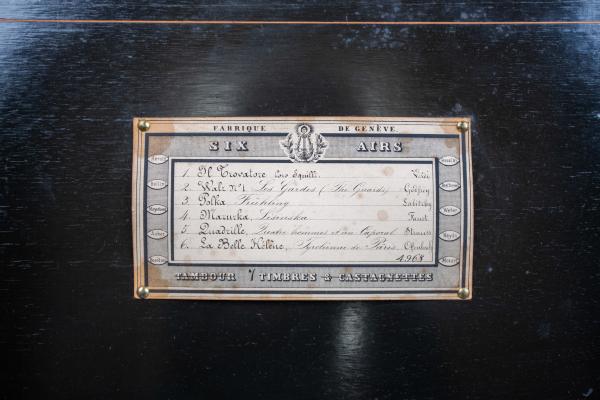 FABRIQUE DE GENÈVE
SIX AIRS
1. Il Trovatore Coro Equille. Verdi
2. Walz No 1 Les Gardes (The Guards) Godfrey
3. Polka Frühling Labitzky
4. Mazurka, Faust
5. Quadrille, Quatre hommes et un Caporal Strauss
6. La Belle Hélène, Tyrolienne de Paris. Offenbach
4968
TAMBOUR 7 TIMBRES & CASTAGNETTES